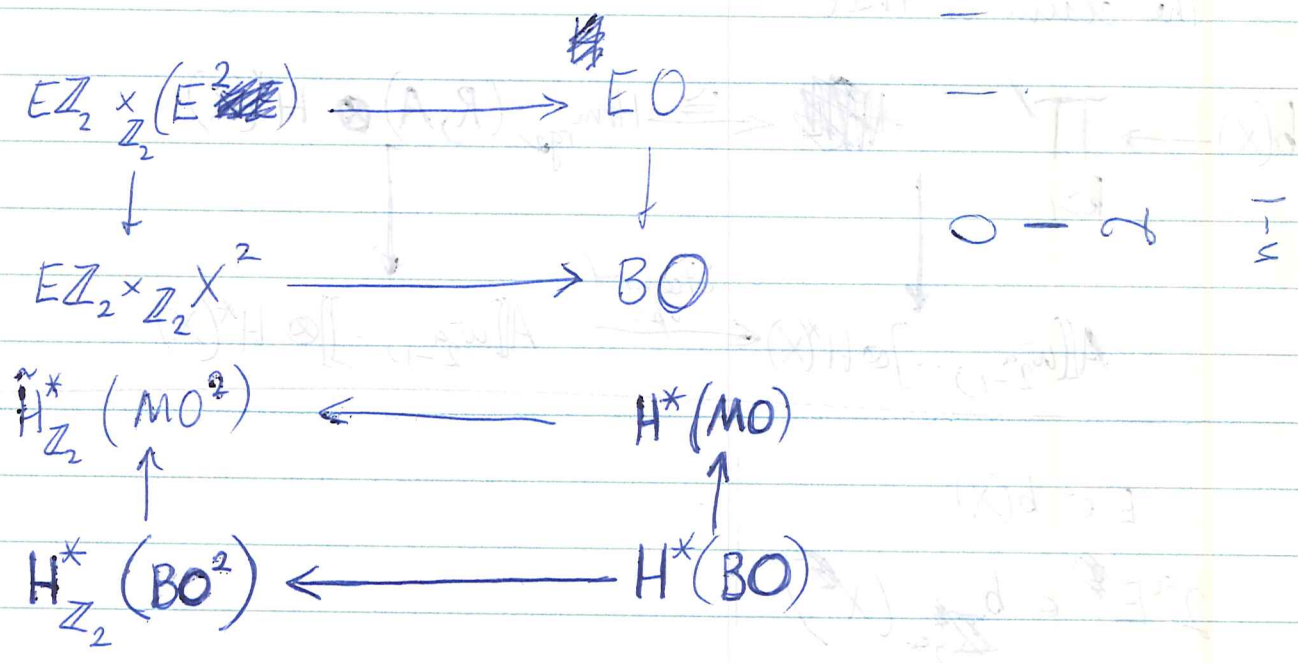 EℤZ₂ ×_ℤ₂ (E²) ⟶ EO
↓ ↓
Eℤ₂ ×_ℤ₂ X² ⟶ BO
H̃*_ℤ₂ (MO²) ⟵ H*(MO)
↑ ↑
H*_ℤ₂ (BO²) ⟵ H*(BO)